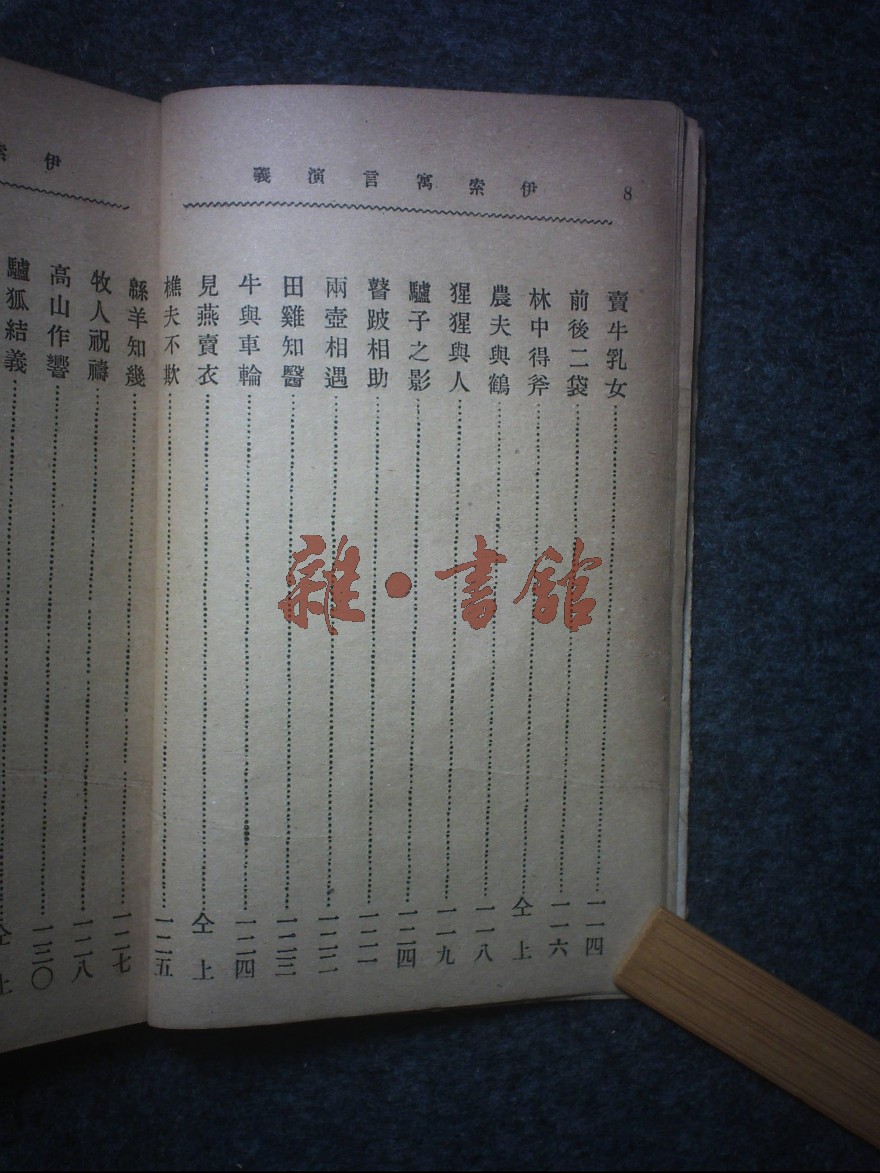 8 伊索寓言演義
賣牛乳女 一一四
前後二袋 一一六
林中得斧 仝上
農夫與鶴 一一八
猩猩與人 一一九
驢子之影 一二四
瞽跛相助 一二一
兩壺相遇 一二二
田雞知醫 一二三
牛與車輪 一二四
見燕賣衣 仝上
樵夫不欺 一二五
伊索
緜羊知幾 一二七
牧人祝禱 一二八
高山作響 一三〇
驢狐結義 仝上
雜·書館